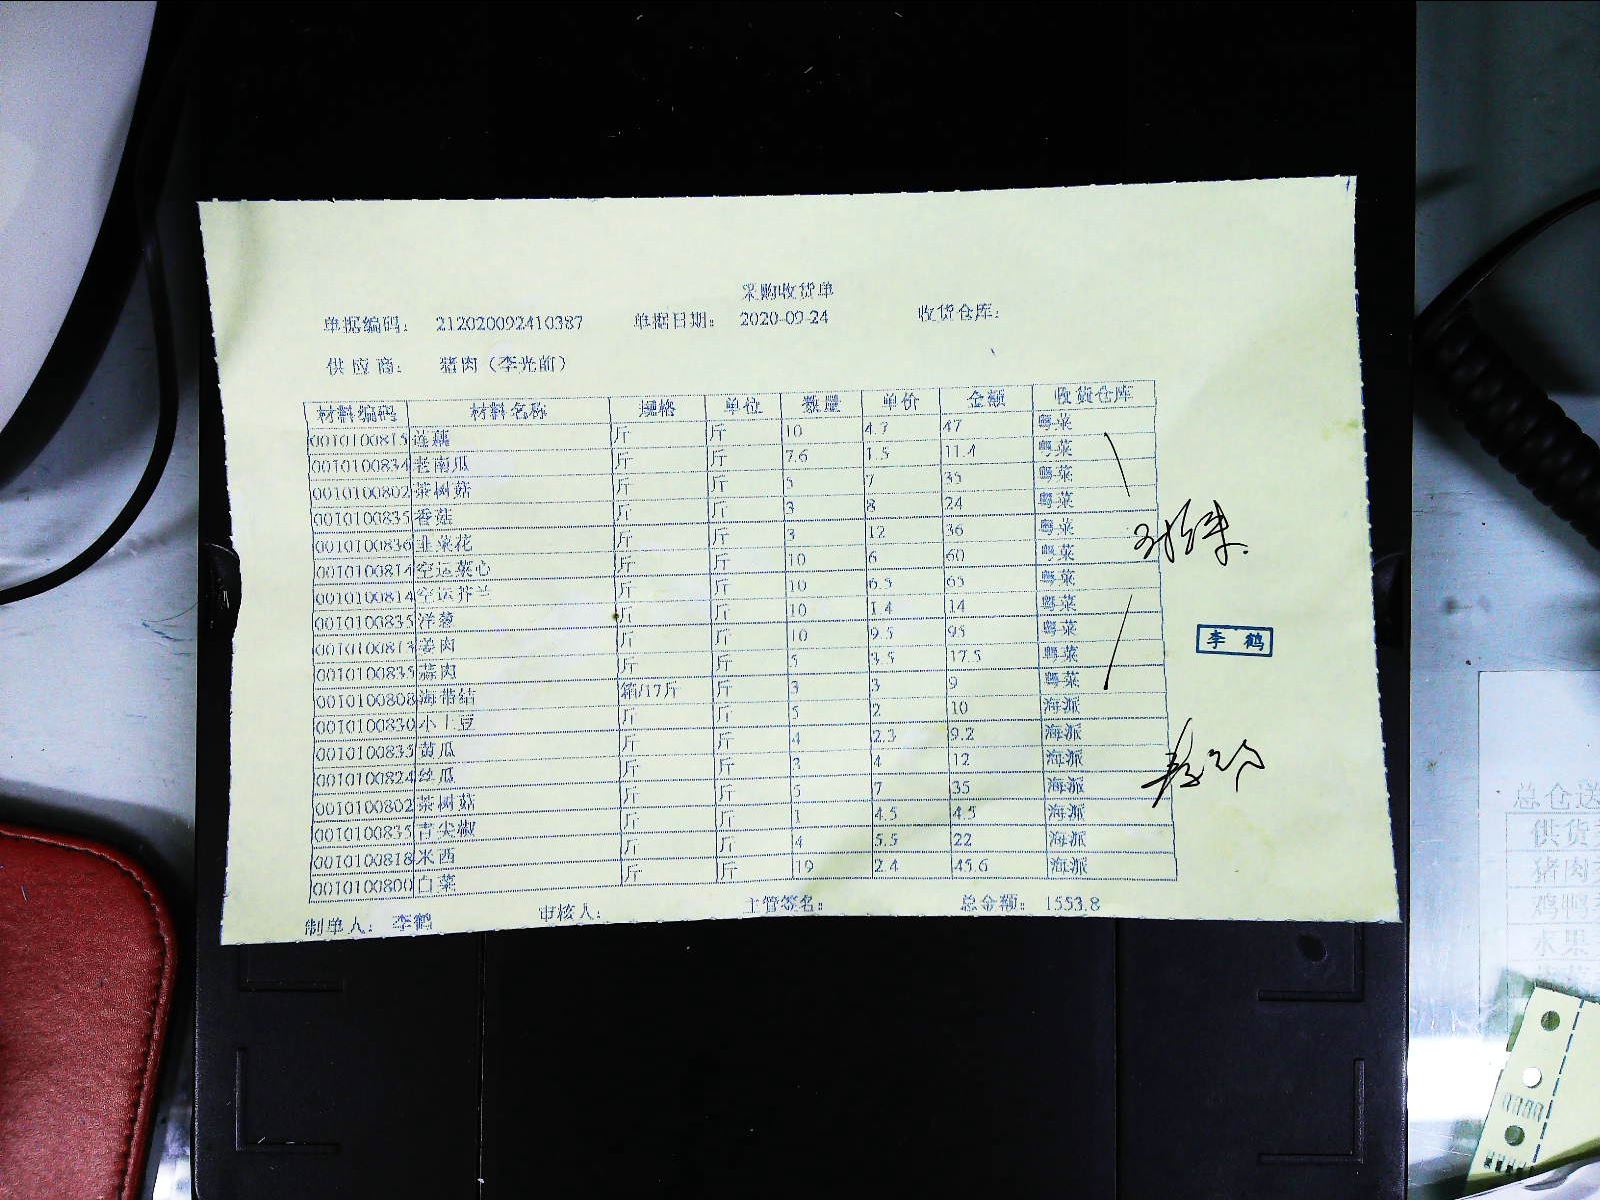 采购收货单
单据编码: 212020092410387 单据日期: 2020-09-24 收货仓库:
供应商: 猪肉（李光前）
材料编码 材料名称 规格 单位 数量 单价 金额 收货仓库
0010100815 莲藕 斤 斤 10 4.7 47 粤菜
0010100834 老南瓜 斤 斤 7.6 1.5 11.4 粤菜
0010100802 茶树菇 斤 斤 5 7 35 粤菜
0010100835 香菇 斤 斤 3 8 24 粤菜
0010100836 韭菜花 斤 斤 3 12 36 粤菜
0010100814 空运菜心 斤 斤 10 6 60 粤菜
0010100814 空运芥兰 斤 斤 10 6.5 65 粤菜
0010100835 洋葱 斤 斤 10 1.4 14 粤菜
0010100813 姜肉 斤 斤 10 9.5 95 粤菜
0010100835 蒜肉 斤 斤 5 3.5 17.5 粤菜
0010100808 海带结 箱/17斤 斤 3 3 9 粤菜
0010100830 小土豆 斤 斤 5 2 10 海派
0010100835 黄瓜 斤 斤 4 2.3 9.2 海派
0010100824 丝瓜 斤 斤 3 4 12 海派
0010100802 茶树菇 斤 斤 5 7 35 海派
0010100835 青尖椒 斤 斤 1 4.5 4.5 海派
0010100818 米西 斤 斤 4 5.5 22 海派
0010100800 白菜 斤 斤 19 2.4 45.6 海派
制单人: 李鹤 审核人: 主管签名: 总金额: 1553.8
李鹤
总仓送
供货
猪肉
鸡鸭
水果